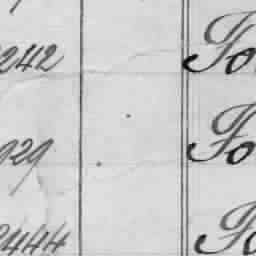 242 Fo
929 Fo
2444 Fo